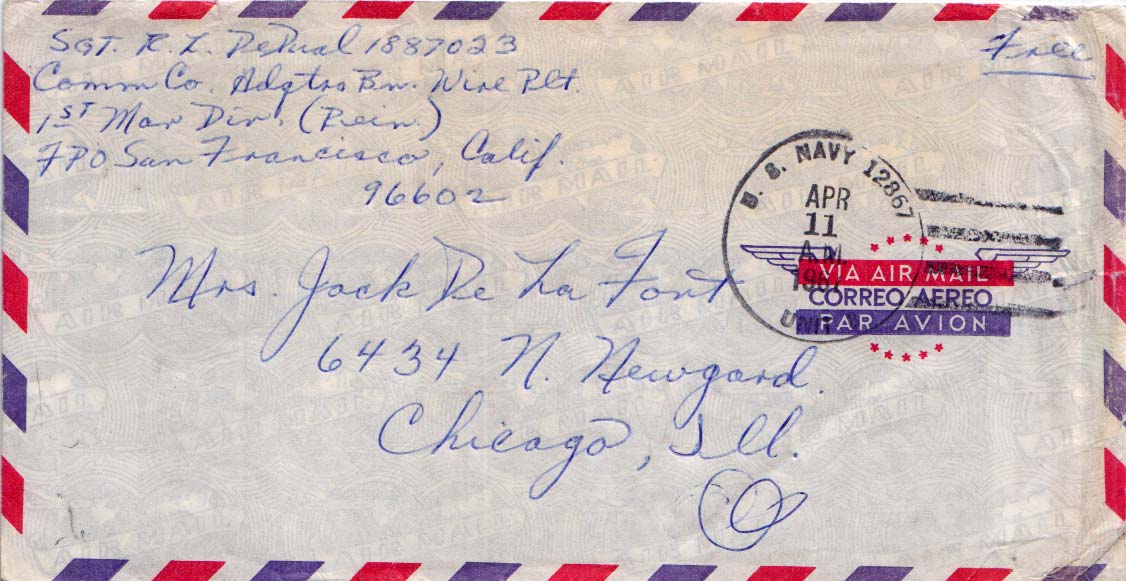 SGT. R. L. DePual 1887023
Free
Comm Co. Hdqtrs Bn. Wire Plt.
1ST Mar Div. (Rein.)
FPO San Francisco, Calif.
96602
U. S. NAVY 12867
APR
11
A.M.
UNIT
Mrs. Jack De La Font
6434 N. Newgard.
Chicago, Ill.
VIA AIR MAIL
CORREO AEREO
PAR AVION